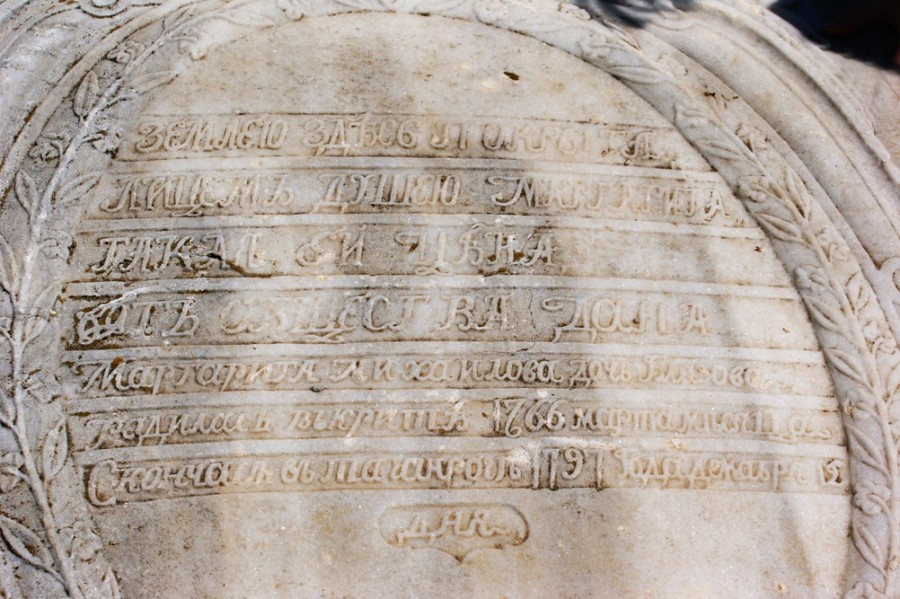 ЗЕМЛЕЮ ЗДѢСЬ ПОКРЫТА
ЛИЦЕМЪ ДУШЕЮ МАРГАРИТА
ТАКАЯ ЕЙ ЦѢНА
ОТЪ СУЩЕСТВА ДАНА
Маргарита Михаилова дочь
радилась вкритѣ 1766 марта мѣсяца
Скончась въ 1797 Года декабря 15
дня